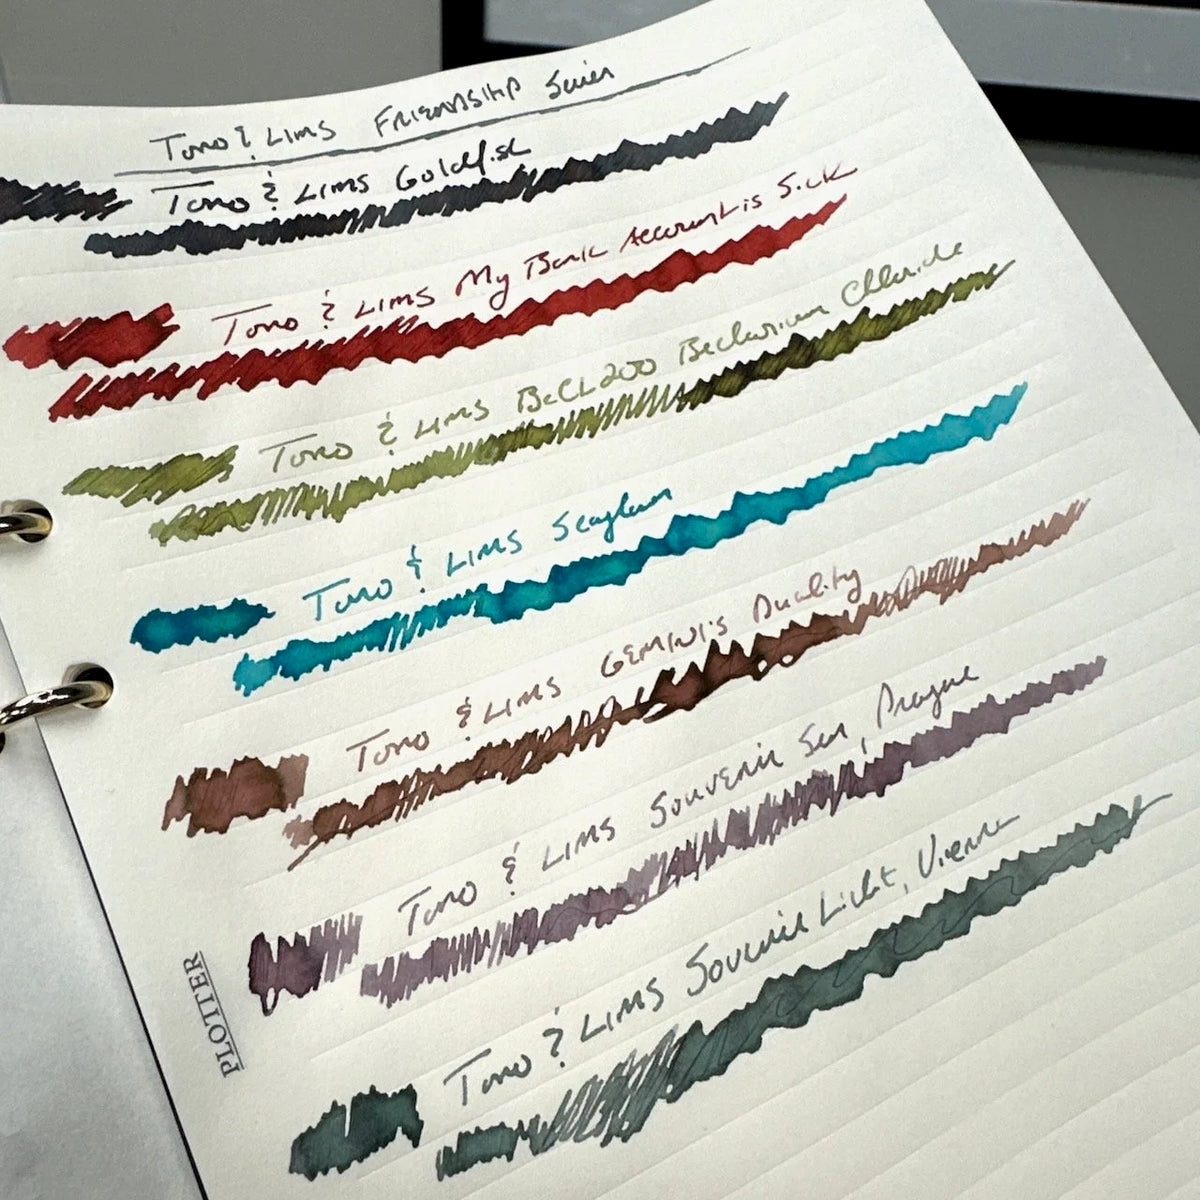 Tono & Lims Friendship Series
Tono & Lims Goldfish
Tono & Lims My Bank Account is Sick
Tono & Lims BeCL200 Berlurium Chloride
Tono & Lims Seaglass
Tono & Lims GEMINI's Duality
Tono & Lims Souvenir Sen, Prague
Tono & Lims Souvenir Licht, Vienna
PLOTTER